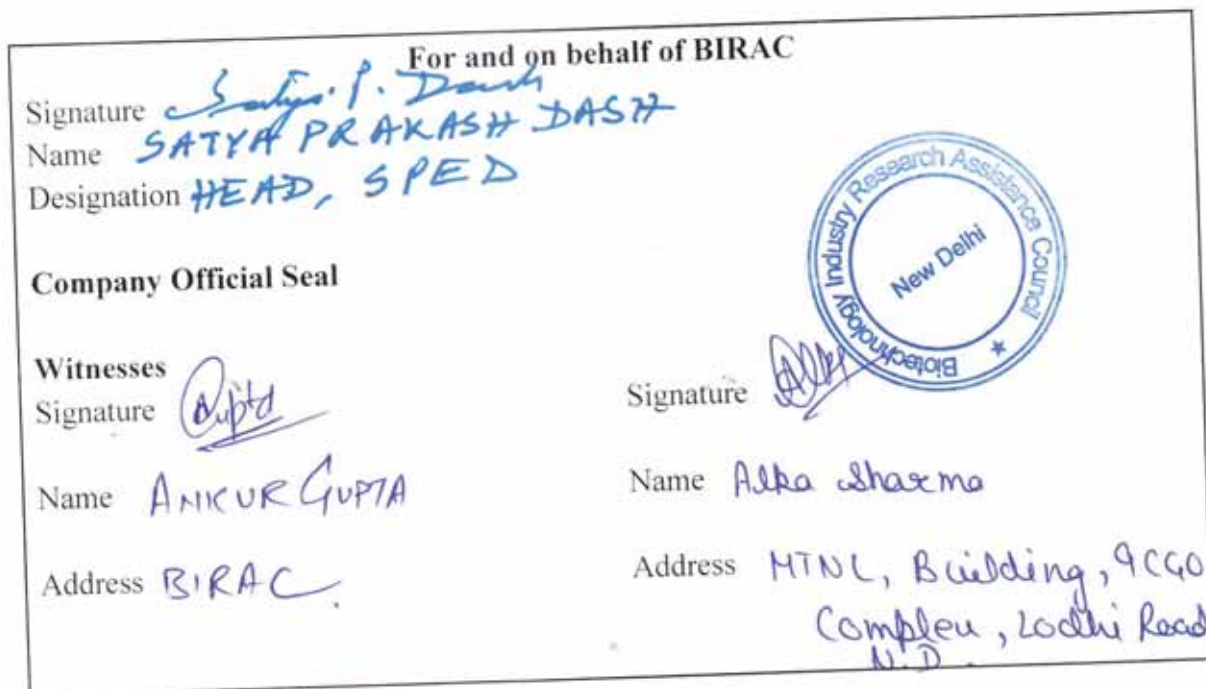 For and on behalf of BIRAC
Signature Satya. P. Dash
Name SATYA PRAKASH DASH
Designation HEAD, SPED
Biotechnology Industry Research Assistance Council
New Delhi
Company Official Seal
Witnesses
Signature Gupta
Name ANKUR GUPTA
Address BIRAC.
Signature Alka
Name Alka Sharma
Address MTNL, Building, 9 CGO
Complex, Lodhi Road
N.D.